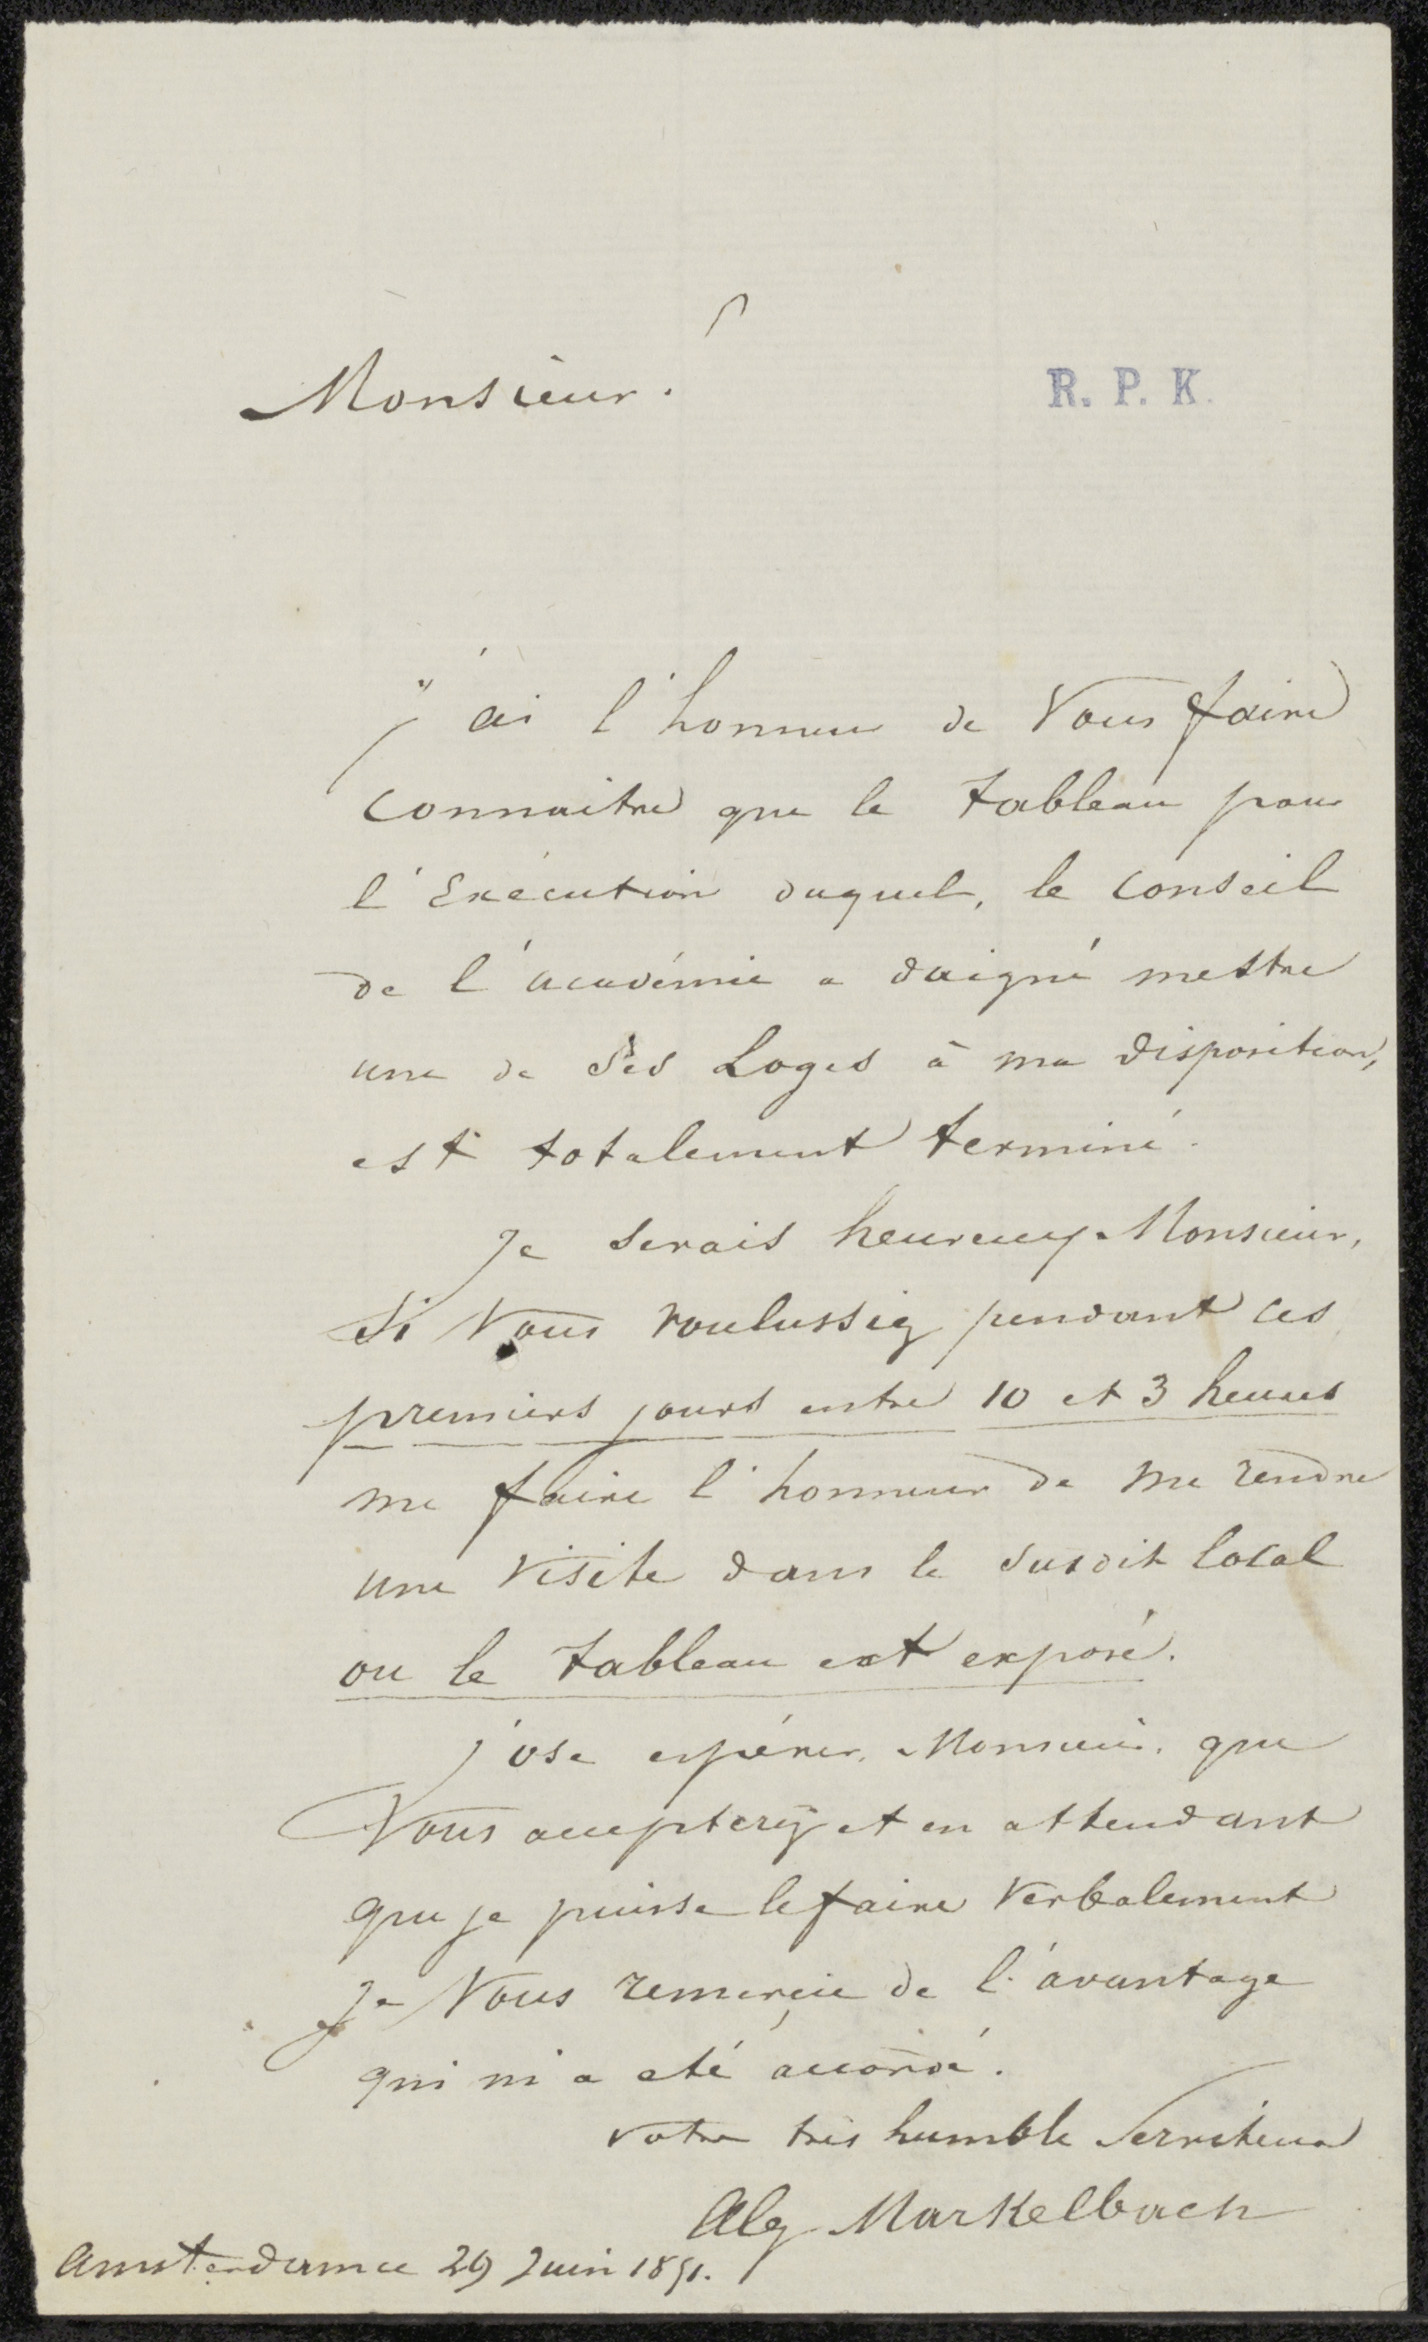 Monsieur.
R. P. K.
j'ai l'honneur de Vous faire
connaitre que le tableau pour
l'Exécution duquel, le conseil
de l'académie a daigné mettre
une de Ses Loges à ma disposition,
est totalement terminé.
Je serais heureux Monsieur,
Si Vous voulussiez pendant ces
premiers jours entre 10 et 3 heures
me faire l'honneur de me rendre
une visite dans le susdit local
ou le tableau est exposé.
j'ose espérer, Monsieur, que
Vous accepterez et en attendant
que je puisse le faire Verbalement
je Vous remerçie de l'avantage
qui m'a eté accordé.
votre très humble Serviteur
Alex Markelbach
Amsterdam ce 29 Juin 1851.